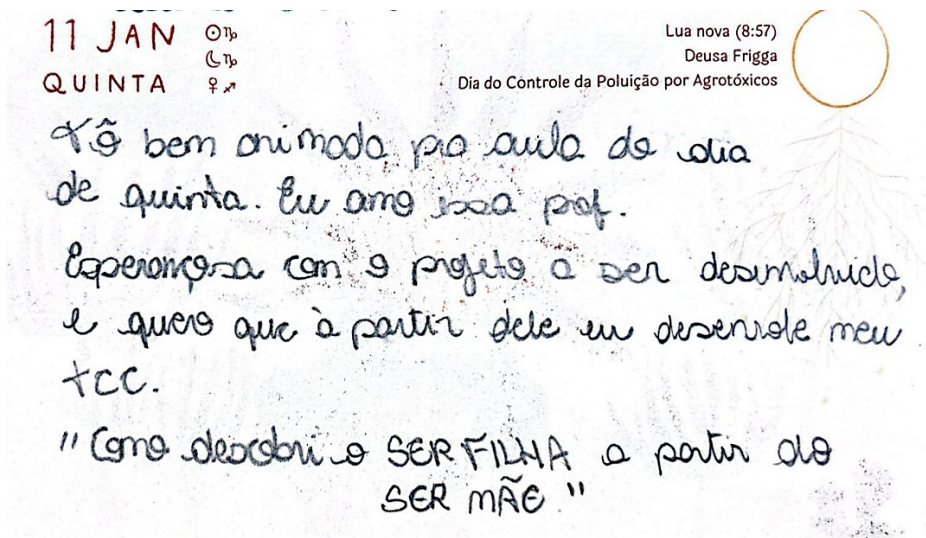 11 JAN ☉♑
☾♑
QUINTA ♀♐
Lua nova (8:57)
Deusa Frigga
Dia do Controle da Poluição por Agrotóxicos
Tô bem animada pra aula do dia
de quinta. Eu amo essa prof.
Esperançosa com o projeto a ser desenvolvido,
e quero que à partir dele eu desenrole meu
TCC.
"Como descobri o SER FILHA a partir do
SER MÃE."